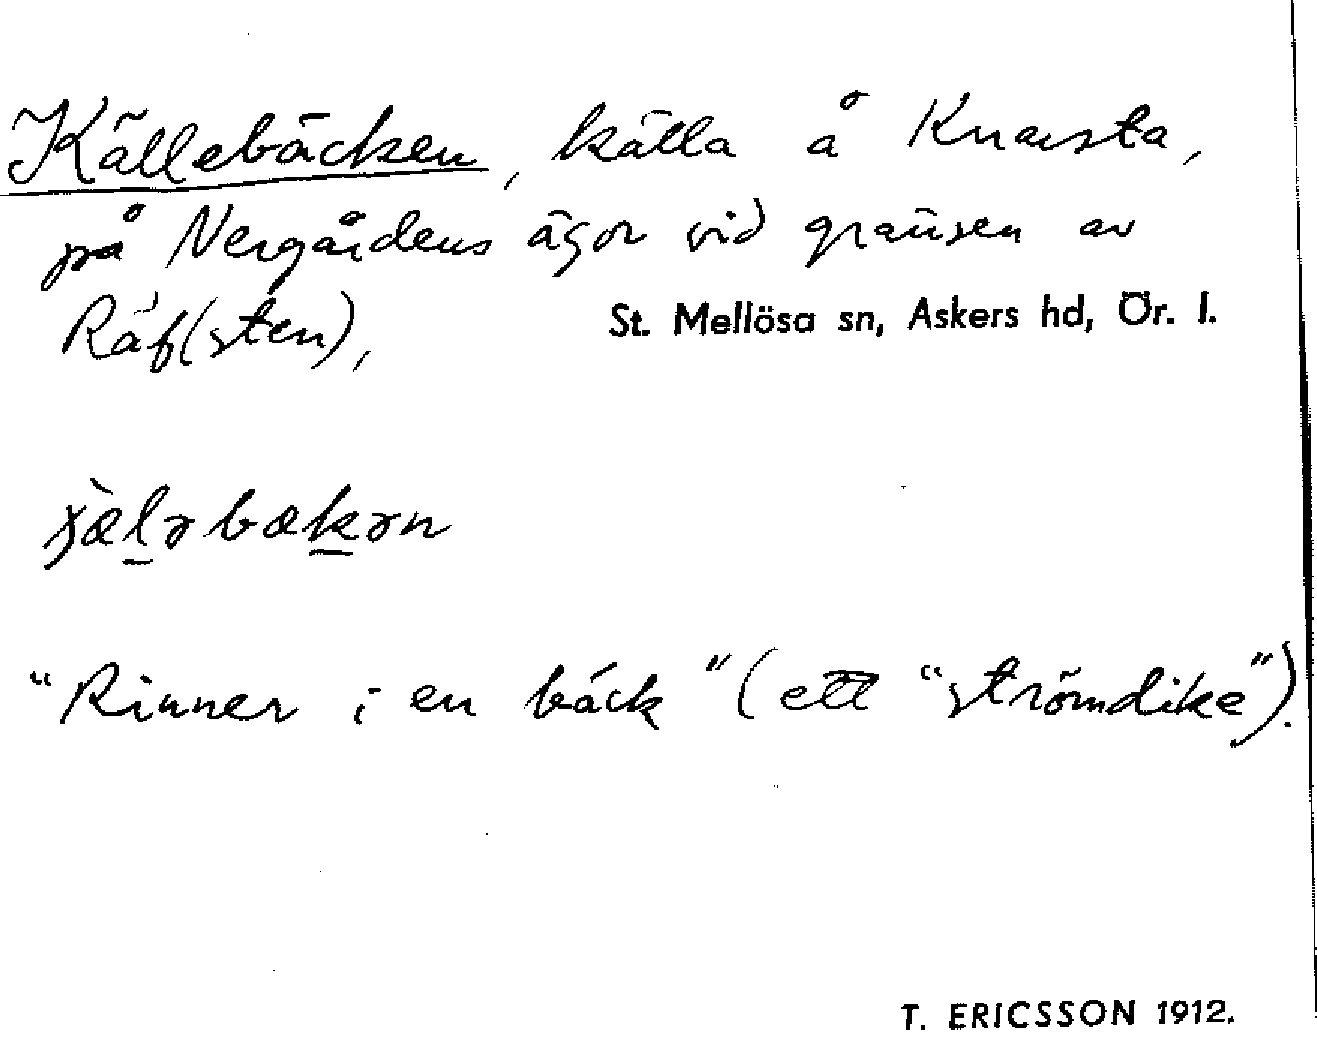 Källebäcken, källa å Knarsta,
på Nergårdens ägor vid gränsen av
Räf(sten),
St. Mellösa sn, Askers hd, Ör. l.
"Rinner i en bäck" (ett "strömdike").
T. ERICSSON 1912.